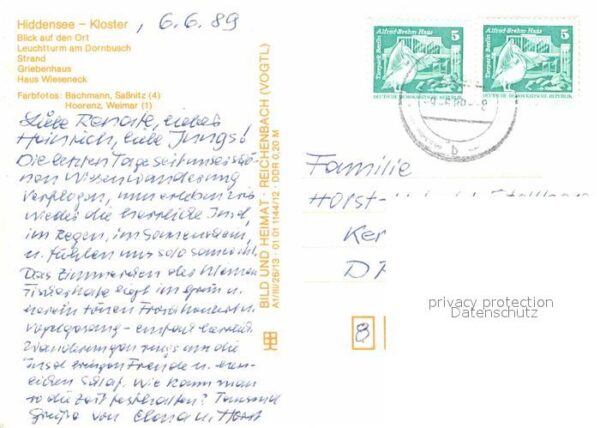 Hiddensee – Kloster, 6.6.89
Blick auf den Ort
Leuchtturm am Dornbusch
Strand
Griebenhaus
Haus Wieseneck
Farbfotos: Bachmann, Saßnitz (4)
Hoorenz, Weimar (1)
Liebe Renate, lieber
Heinrich, liebe Jungs!
Die letzten Tage seit unserer
Wiesenwanderung
verflogen, nun erleben wir
wieder die herrliche Insel,
im Regen, im Sonnenschein,
u. fühlen uns so
Das Zimmerchen der kleinen
Fischerkate liegt im grün u.
herein tönen Froschkonzert u.
Vogelgesang – einfach herrlich.
Wanderungen rings um die
Insel bringen Freude u.
Schlaf. Wie kann man
so die Zeit festhalten? Tausend
Grüße von Elena u. Horst
BILD UND HEIMAT · REICHENBACH (VOGTL)
A1/III/26/13 · 01 01 1144/12 · DDR 0,20 M
Alfred-Brehm Haus
5
Tierpark Berlin
DEUTSCHE DEMOKRATISCHE REPUBLIK
Alfred-Brehm Haus
5
Tierpark Berlin
DEUTSCHE DEMOKRATISCHE REPUBLIK
b
Familie
Horst-
Ker
D
8
privacy protection
Datenschutz